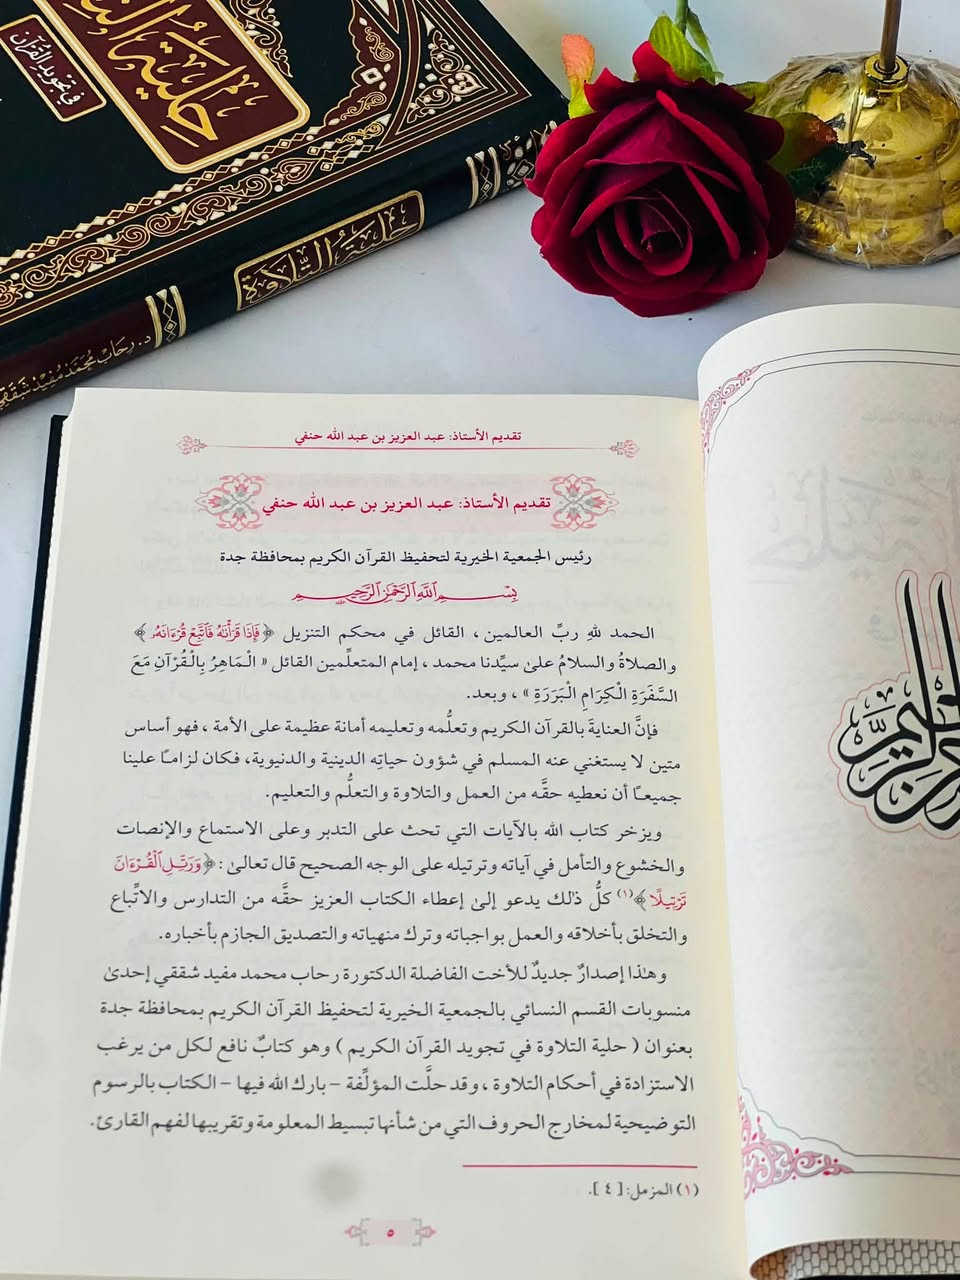 حلية
في تجويد القرآن
حلية التلاوة
د. رحاب محمد مفيد شققي
تقديم الأستاذ: عبد العزيز بن عبد الله حنفي
تقديم الأستاذ: عبد العزيز بن عبد الله حنفي
رئيس الجمعية الخيرية لتحفيظ القرآن الكريم بمحافظة جدة
بِسْمِ اللَّهِ الرَّحْمَٰنِ الرَّحِيمِ
الحمد للهِ ربِّ العالمين ، القائل في محكم التنزيل ﴿ فَإِذَا قَرَأْنَٰهُ فَٱتَّبِعْ قُرْءَانَهُۥ ﴾
والصلاةُ والسلامُ علىٰ سيِّدنا محمد ، إمام المتعلِّمين القائل « الْمَاهِرُ بِالْقُرْآنِ مَعَ
السَّفَرَةِ الْكِرَامِ الْبَرَرَةِ » ، وبعد.
فإنَّ العنايةَ بالقرآن الكريم وتعلُّمه وتعليمه أمانة عظيمة على الأمة ، فهو أساس
متين لا يستغني عنه المسلم في شؤون حياتِه الدينية والدنيوية، فكان لزامـًا علينا
جميعـًا أن نعطيه حقَّه من العمل والتلاوة والتعلُّم والتعليم.
ويزخر كتاب الله بالآيات التي تحث على التدبر وعلى الاستماع والإنصات
والخشوع والتأمل في آياته وترتيله على الوجه الصحيح قال تعالىٰ : ﴿ وَرَتِّلِ ٱلْقُرْءَانَ
تَرْتِيلًا ﴾(١) كلُّ ذٰلك يدعو إلىٰ إعطاء الكتاب العزيز حقَّه من التدارس والاتِّباع
والتخلق بأخلاقه والعمل بواجباته وترك منهياته والتصديق الجازم بأخباره.
وهٰذا إصدارٌ جديدٌ للأخت الفاضلة الدكتورة رحاب محمد مفيد شققي إحدىٰ
منسوبات القسم النسائي بالجمعية الخيرية لتحفيظ القرآن الكريم بمحافظة جدة
بعنوان ( حلية التلاوة في تجويد القرآن الكريم ) وهو كتابٌ نافع لكل من يرغب
الاستزادة في أحكام التلاوة ، وقد حلَّت المؤلِّفة – بارك الله فيها – الكتاب بالرسوم
التوضيحية لمخارج الحروف التي من شأنها تبسيط المعلومة وتقريبها لفهم القارئ.
(١) المزمل: [ ٤ ].
٥